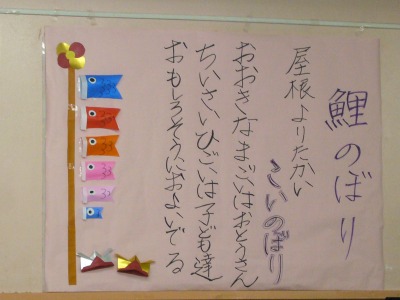 鯉のぼり
屋根よりたかい
こいのぼり
おおきなまごいはおとうさん
ちいさいひごいは子ども達
おもしろそうにおよいでる